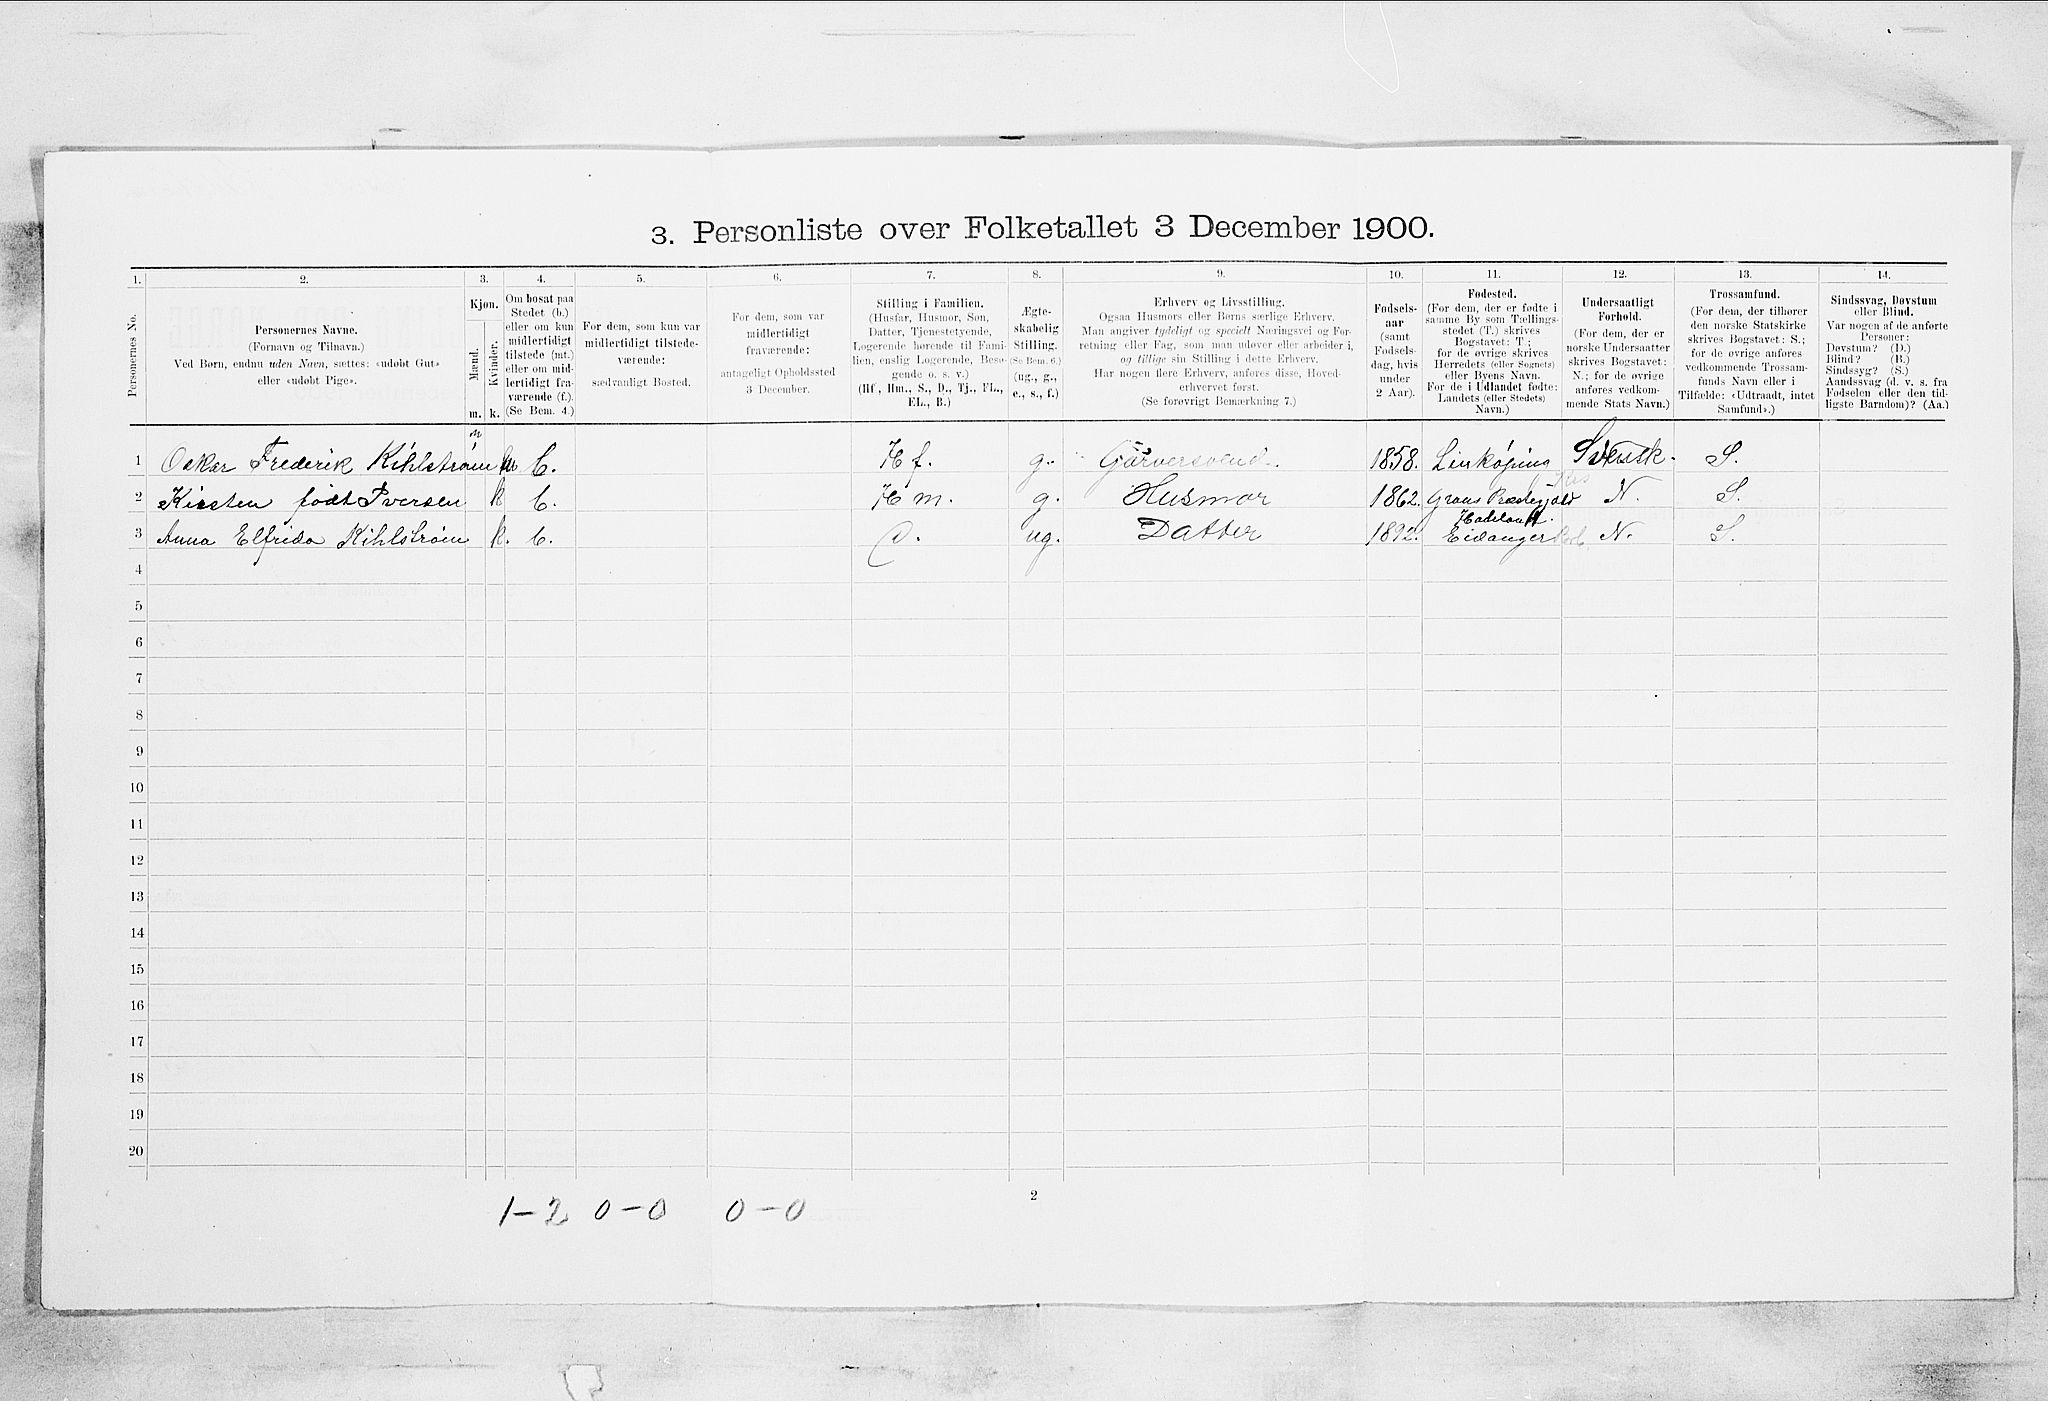 3. Personliste over Folketallet 3 December 1900.
1. 2. 3. 4. 5. 6. 7. 8. 9. 10. 11. 12. 13. 14.
Personernes No.
Personernes Navne.
(Fornavn og Tilnavn.)
Ved Børn, endnu uden Navn, sættes: «udøbt Gut»
eller «udøbt Pige».
Kjøn.
Mænd.
Kvinder.
m. k.
Om bosat paa
Stedet (b.)
eller om kun
midlertidigt
tilstede (mt.)
eller om mid-
lertidigt fra-
værende (f.).
(Se Bem. 4.)
For dem, som kun var
midlertidigt tilstede-
værende:
sædvanligt Bosted.
For dem, som var
midlertidigt
fraværende:
antageligt Opholdssted
3 December.
Stilling i Familien.
(Husfar, Husmor, Søn,
Datter, Tjenestetyende,
Logerende hørende til Fami-
lien, enslig Logerende, Besø-
gende o. s. v.)
(Hf, Hm., S., D., Tj., FL.,
EL., B.)
Ægte-
skabelig
Stilling.
(Se Bem. 6.)
(ug., g.,
e., s., f.)
Erhverv og Livsstilling.
Ogsaa Husmors eller Børns særlige Erhverv.
Man angiver tydeligt og specielt Næringsvei og For-
retning eller Fag, som man udøver eller arbeider i,
og tillige sin Stilling i dette Erhverv.
Har nogen flere Erhverv, anføres disse, Hoved-
erhvervet først.
(Se forøvrigt Bemærkning 7.)
Fødsels-
aar
(samt
Fødsels-
dag, hvis
under
2 Aar).
Fødested.
(For dem, der er fødte i
samme By som Tællings-
stedet (T.) skrives
Bogstavet: T.;
for de øvrige skrives
Herredets (eller Sognets)
eller Byens Navn.
For de i Udlandet fødte:
Landets (eller Stedets)
Navn.)
Undersaatligt
Forhold.
(For dem, der er
norske Undersaatter
skrives Bogstavet:
N.; for de øvrige
anføres vedkom-
mende Stats Navn.)
Trossamfund.
(For dem, der tilhører
den norske Statskirke
skrives Bogstavet: S.;
for de øvrige anføres
vedkommende Trossam-
funds Navn eller i
Tilfælde: «Udtraadt, intet
Samfund».)
Sindssvag, Døvstum
eller Blind.
Var nogen af de anførte
Personer:
Døvstum? (D.)
Blind? (B.)
Sindssyg? (S.)
Aandssvag (d. v. s. fra
Fødselen eller den tid-
ligste Barndom)? (Aa.)
1 Oskar Frederik Kihlstrøm m b. Hf. g. Garversvend. 1858. Linköping Svensk. S.
2 Kirsten født Iversen k b. Hm. g. Husmor 1862. Grans Præstegjæld Hadeland. N. S.
3 Anna Elfrida Kihlstrøm k. b. D. ug. Datter 1892. Eidanger N. S.
4
5
6
7
8
9
10
11
12
13
14
15
16
17
18
19
20
1-2 0-0 0-0
2